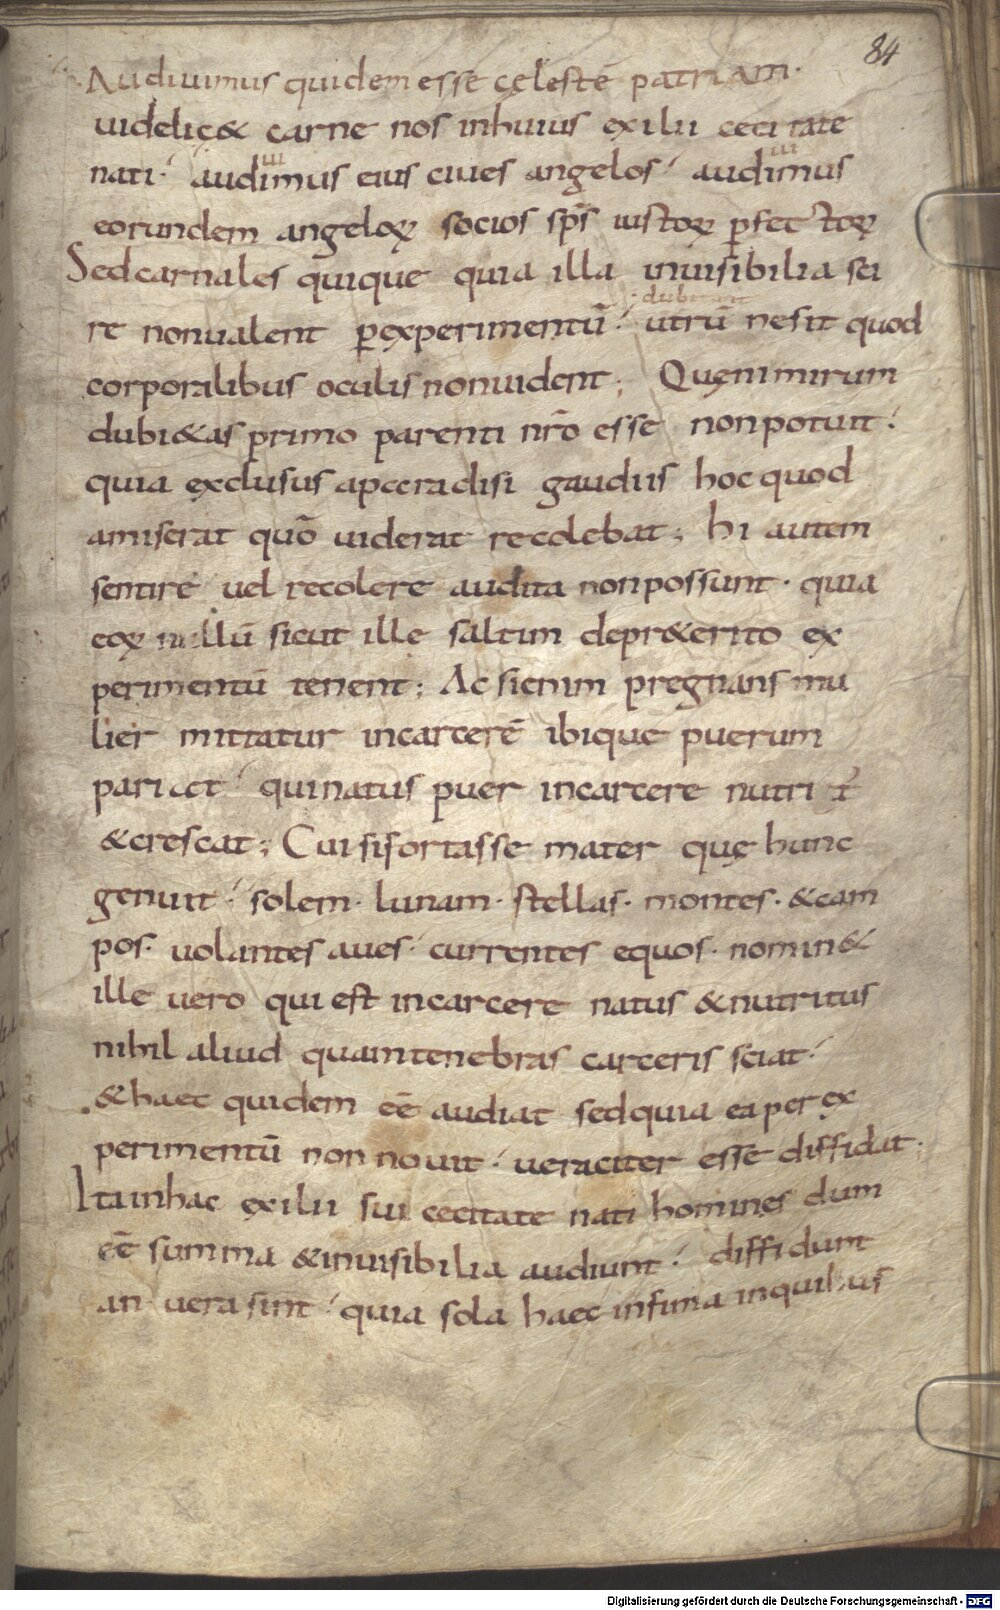 84
Audiuimus quidem esse cęlestē patriam·
uidelic& carne nos inhuius exilii ceci tate
nati· audiuimus eius ciues angelos· audiuimus
eorundem angeloꝝ socios sp̄s iustoꝝ ꝑfectoꝝ
Sedcarnales quique quia illa inuisibilia sci
re nonualent ꝑexperimentū· dubitant utrū nesit quod
corporalibus oculis nonuident; Quęnimirum
dubi&as primo parenti nr̄o esse nonpotuit·
quia exclusus aparadisi gaudiis hoc quod
amiserat quō uiderat recolebat; hi autem
sentire uel recolere audita nonpossunt· quia
eoꝝ nullū sicut ille saltim depr&erito ex
perimentū tenent; Ac sienim pregnans mu
lier mittatur incarcerē ibique puerum
pariat· quinatus puer incarcere nutri t̄
&crescat; Cui sifortasse mater quę hunc
genuit· solem· lunam· stellas· montes· &cam
pos· uolantes aues· currentes equos· nomin&
ille uero qui est incarcere natus &nutritus
nihil aliud quamtenebras carceris sciat·
&haec quidem eē audiat sedquia ea per ex
perimentū non nouit· ueraciter esse diffidat·
Ita inhac exilii sui cecitate nati homines dum
eē summa &inuisibilia audiunt· diffidunt
an uera sint· quia sola haec infima inquibus
Digitalisierung gefördert durch die Deutsche Forschungsgemeinschaft - DFG